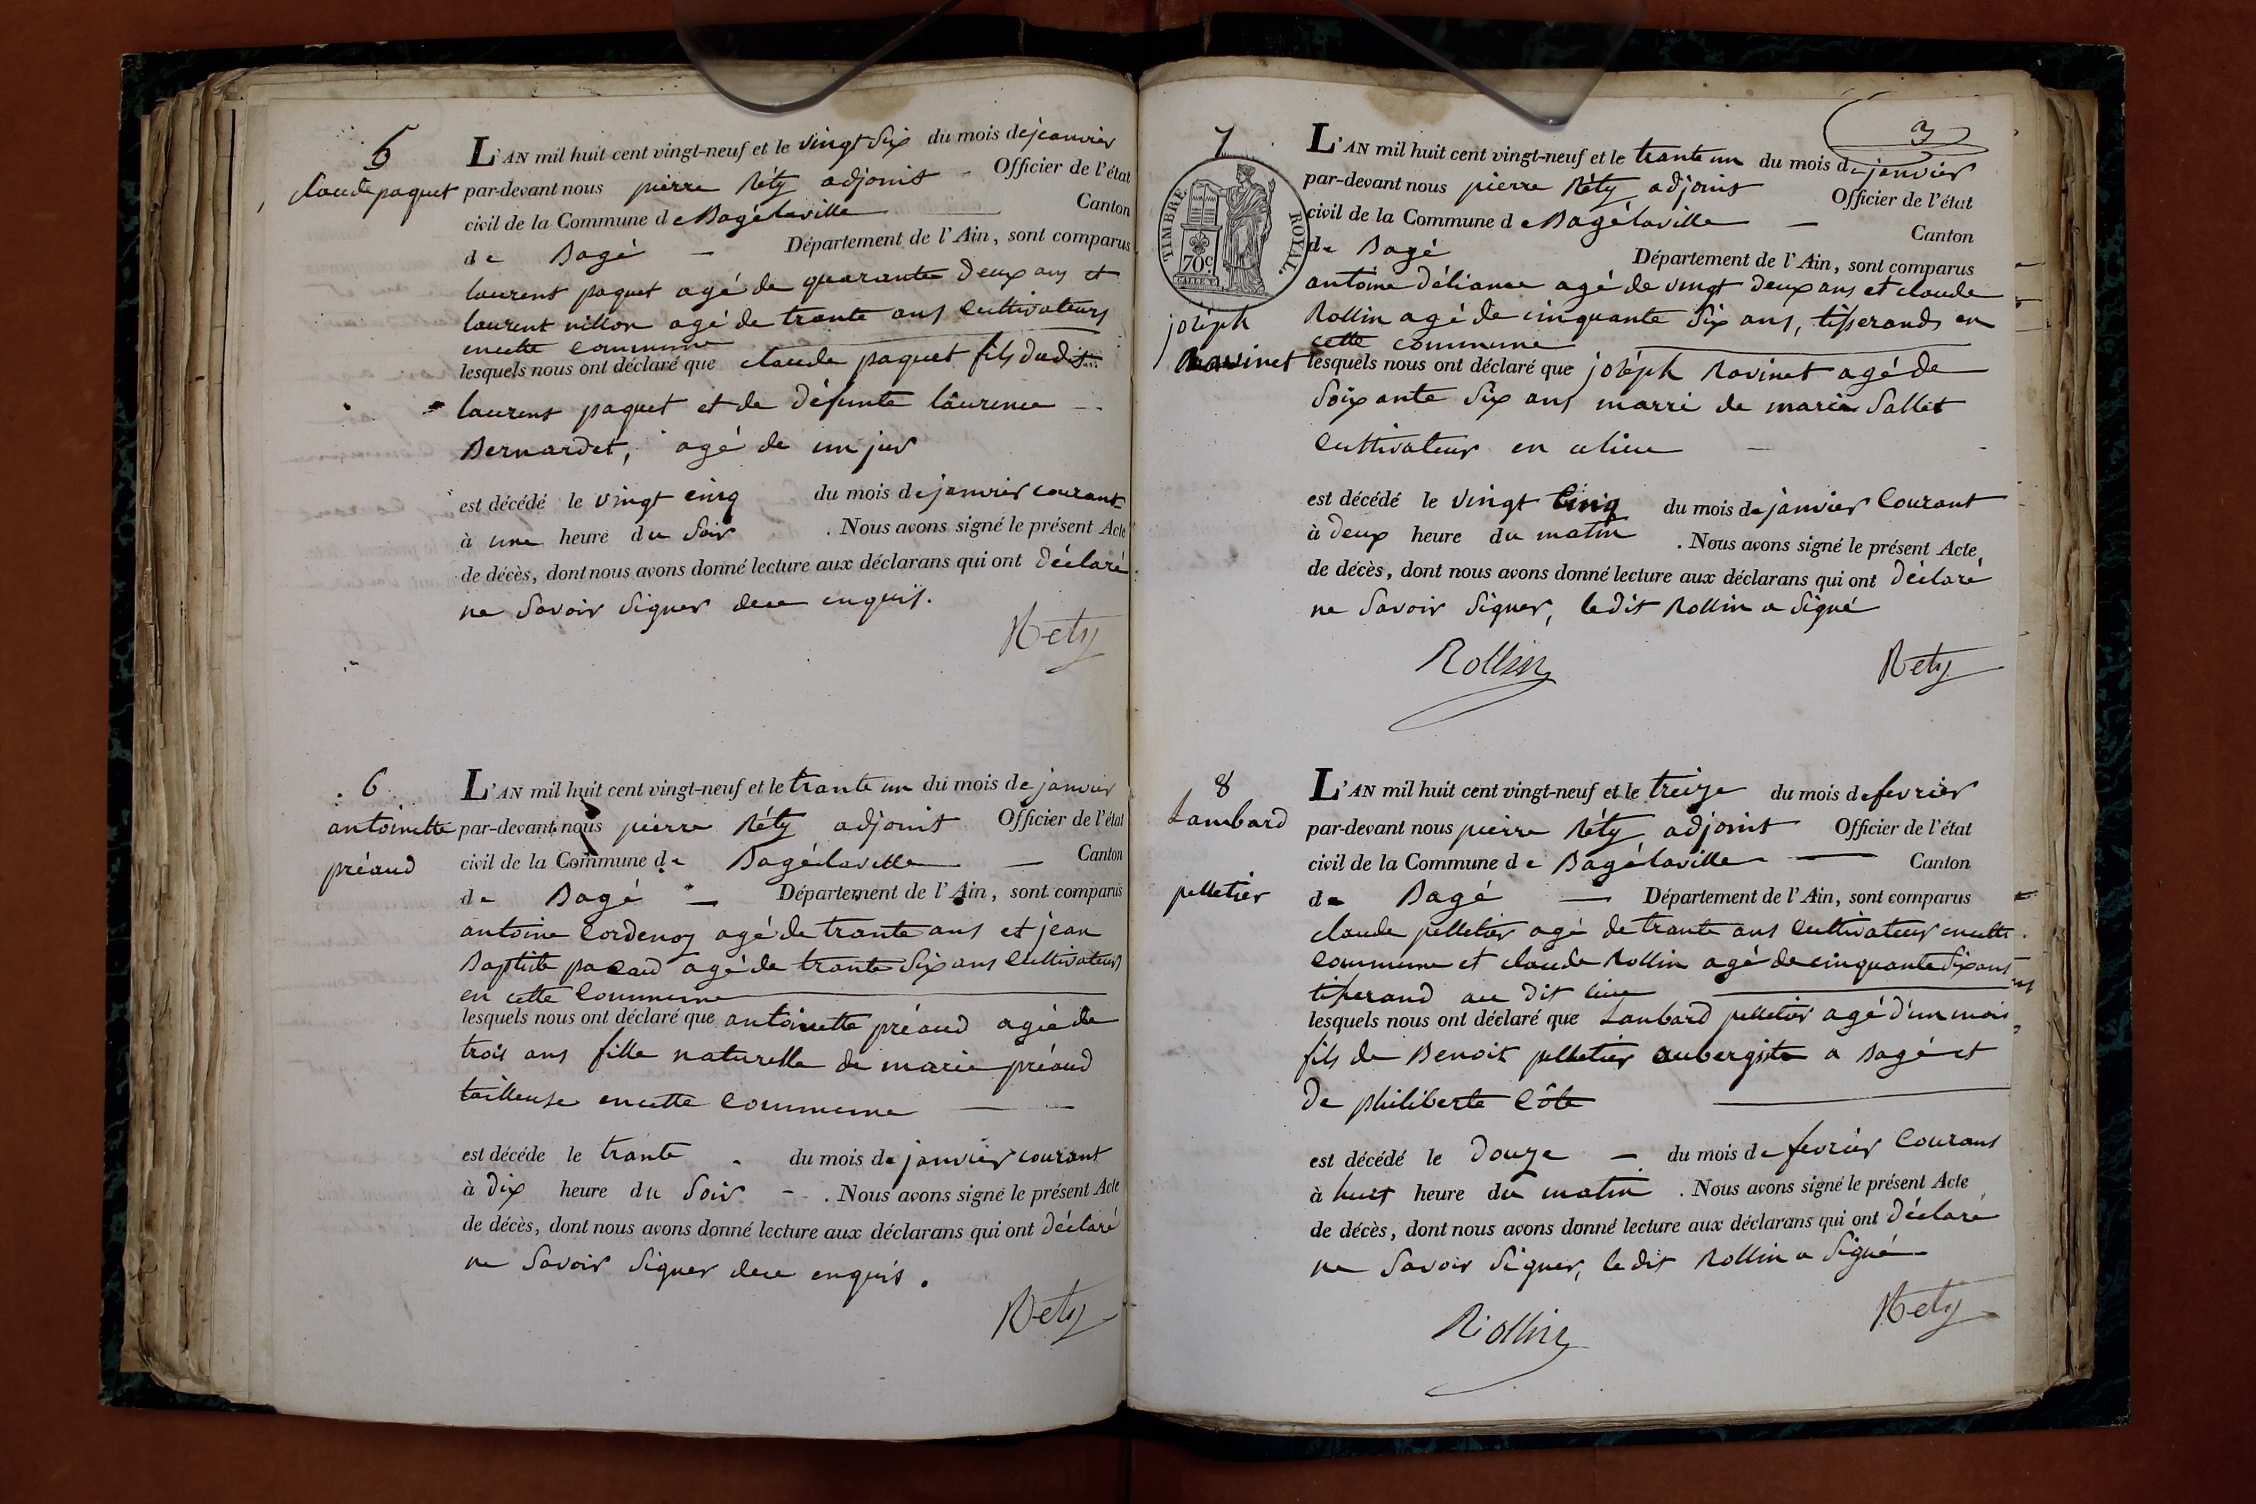 5
claude paquet
L'AN mil huit cent vingt-neuf et le vingt six du mois de jeanvier
par-devant nous pierre Réty adjoint Officier de l'état
civil de la Commune de Bagélaville Canton
de Bagé Département de l'Ain, sont comparus
laurent paquet agé de quarante deux ans et
laurent nillon agé de trante ans cultivateurs
encette commune
lesquels nous ont déclaré que claude paquet fils dudit
laurent paquet et de défunte laurence
Bernardet, agé de un jur
est décédé le vingt cinq du mois de janvier courant
à une heure du soir . Nous avons signé le présent Acte
de décès, dont nous avons donné lecture aux déclarans qui ont déclaré
ne savoir signer dece enquis.
Rety
6
antoinette
préaud
L'AN mil huit cent vingt-neuf et le trante un du mois de janvier
par-devant nous pierre Réty adjoint Officier de l'état
civil de la Commune de Bagélaville Canton
de Bagé Département de l'Ain, sont comparus
antoine Cordenoz agé de trante ans et jean
Baptiste pacaud agé de trante six ans cultivateurs
en cette commune
lesquels nous ont déclaré que antoinette préaud agée de
trois ans fille naturelle de marie préaud
tailleuse encette commune
est décédé le trante du mois de janvier courant
à dix heure du soir . Nous avons signé le présent Acte
de décès, dont nous avons donné lecture aux déclarans qui ont déclaré
ne savoir signer dece enquis.
Rety
3
7
TIMBRE ROYAL
70c
joséph
Ravinet
L'AN mil huit cent vingt-neuf et le trante un du mois de janvier
par-devant nous pierre Réty adjoint Officier de l'état
civil de la Commune de Bagélaville Canton
de Bagé Département de l'Ain, sont comparus
antoine déliance agé de vingt deux ans et claude
Rollin agé de cinquante six ans, tisserands en
cette commune
lesquels nous ont déclaré que joséph Ravinet agé de
soixante six ans marri de marie Sallet
cultivateur en celieu
est décédé le vingt cinq du mois de janvier courant
à deux heure du matin . Nous avons signé le présent Acte
de décès, dont nous avons donné lecture aux déclarans qui ont déclaré
ne savoir signer, ledit Rollin a signé
Rollin
Rety
8
Lambard
pelletier
L'AN mil huit cent vingt-neuf et le treize du mois de fevrier
par-devant nous pierre Réty adjoint Officier de l'état
civil de la Commune de Bagélaville Canton
de Bagé Département de l'Ain, sont comparus
claude pelletier agé de trante ans cultivateur encette
commune et claude Rollin agé de cinquante six ans
tisserand au dit lieu
lesquels nous ont déclaré que Lanbard pelletier agé d'un mois
fils de Benoit pelletier aubergiste a Bagé et
de philiberte Côte
est décédé le douze du mois de fevrier courant
à huit heure du matin . Nous avons signé le présent Acte
de décès, dont nous avons donné lecture aux déclarans qui ont déclaré
ne savoir signer, ledit Rollin a signé
Rollin
Rety